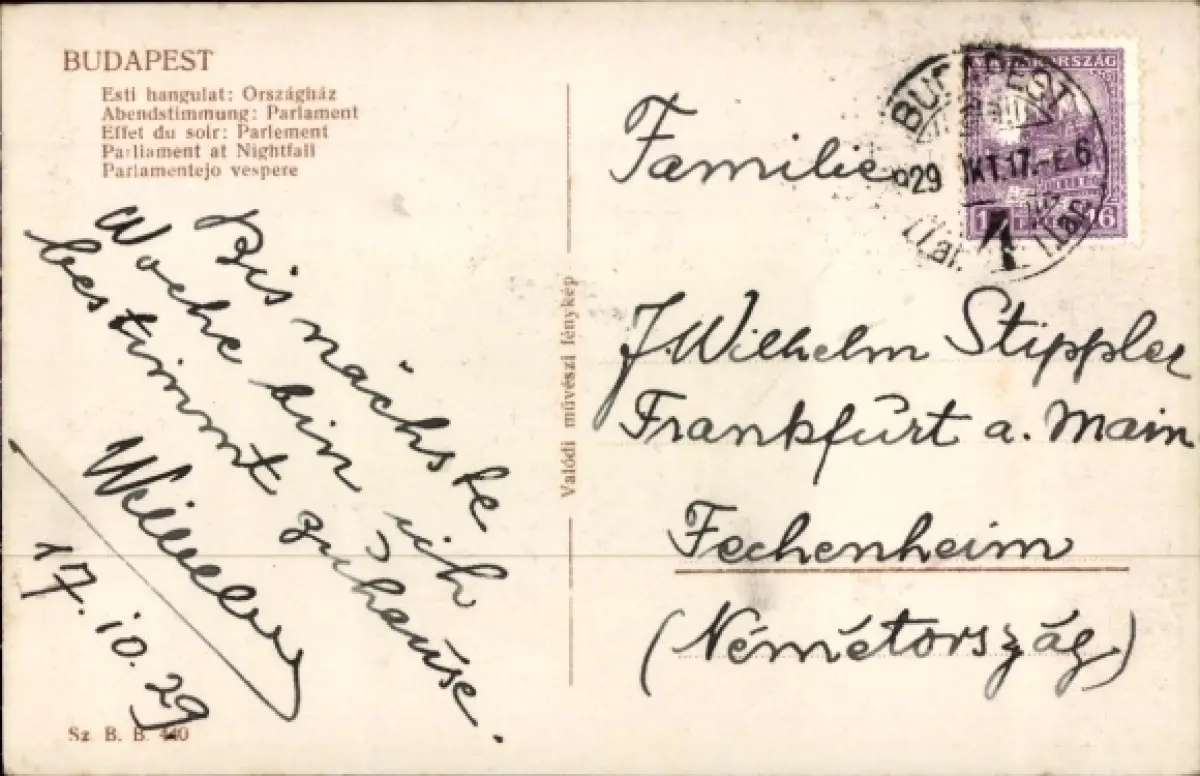 BUDAPEST
Esti hangulat: Országház
Abendstimmung: Parlament
Effet du soir: Parlement
Parliament at Nightfall
Parlamentejo vespere
Bis nächste
Woche bin ich
bestimmt zuhause.
17.10.29
Sz. B. B. 440
Valódi művészi fénykép
MAGYARORSZÁG
BUDAPEST
929 OKT.17.-E 6
1
16
Familie
J. Wilhelm Stippler
Frankfurt a. Main
Fechenheim
(Németország)